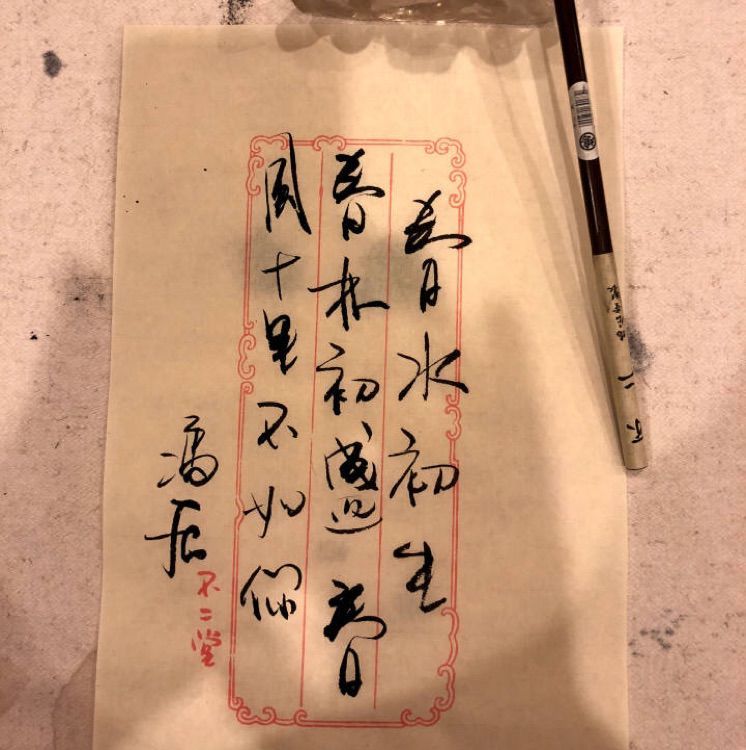 春水初生
春林初盛春
风十里不如你
冯唐
不二堂